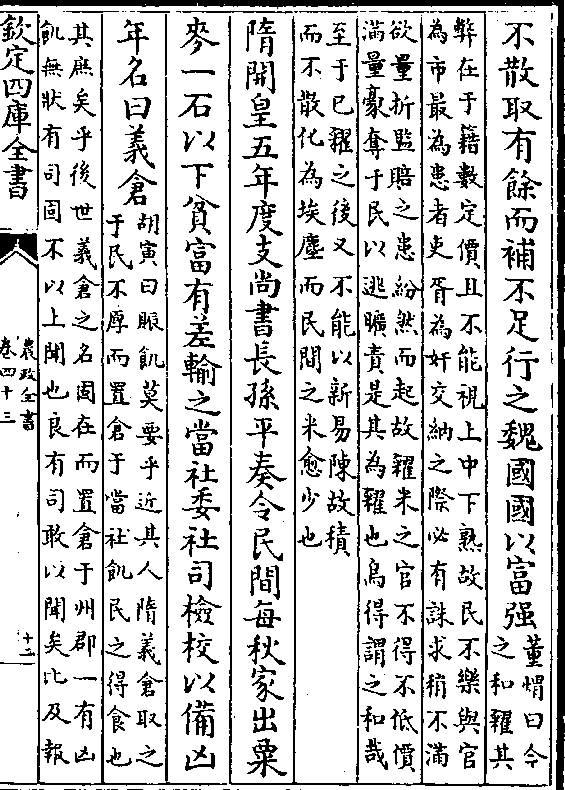 不散取有餘而補不足行之魏國國以富强
董煟曰今
之和糴其
弊在于籍數定價且不能視上中下熟故民不樂與官
為市最為患者吏胥為奸交納之際必有誅求稍不滿
欲量折監賠之患紛然而起故糴米之官不得不低價
滿量豪奪于民以逃曠責是其為糴也烏得謂之和哉
至于已糴之後又不能以新易陳故積
而不散化為埃塵而民間之米愈少也
隋開皇五年度支尚書長孫平奏令民間每秋家出粟
麥一石以下貧富有差輸之當社委社司檢校以備凶
年名曰義倉
胡寅曰賑飢莫要乎近其人隋義倉取之
于民不厚而置倉于當社飢民之得食也
其庶矣乎後世義倉之名固在而置倉于州郡一有凶
飢無狀有司固不以上聞也良有司敢以聞矣比及報
欽定四庫全書
農政全書
卷四十三
十二